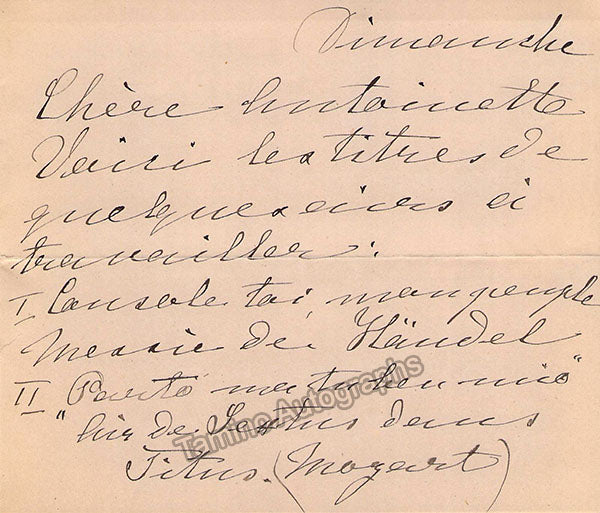 Dimanche
Chère Antoinette
Voici les titres de
quelques airs à
travailler:
I Console toi, mon peuple
Messie de Händel
II Parto ma tu ben mio"
"Air de Sextus dans
Titus. (Mozart)
Tamino Autographs